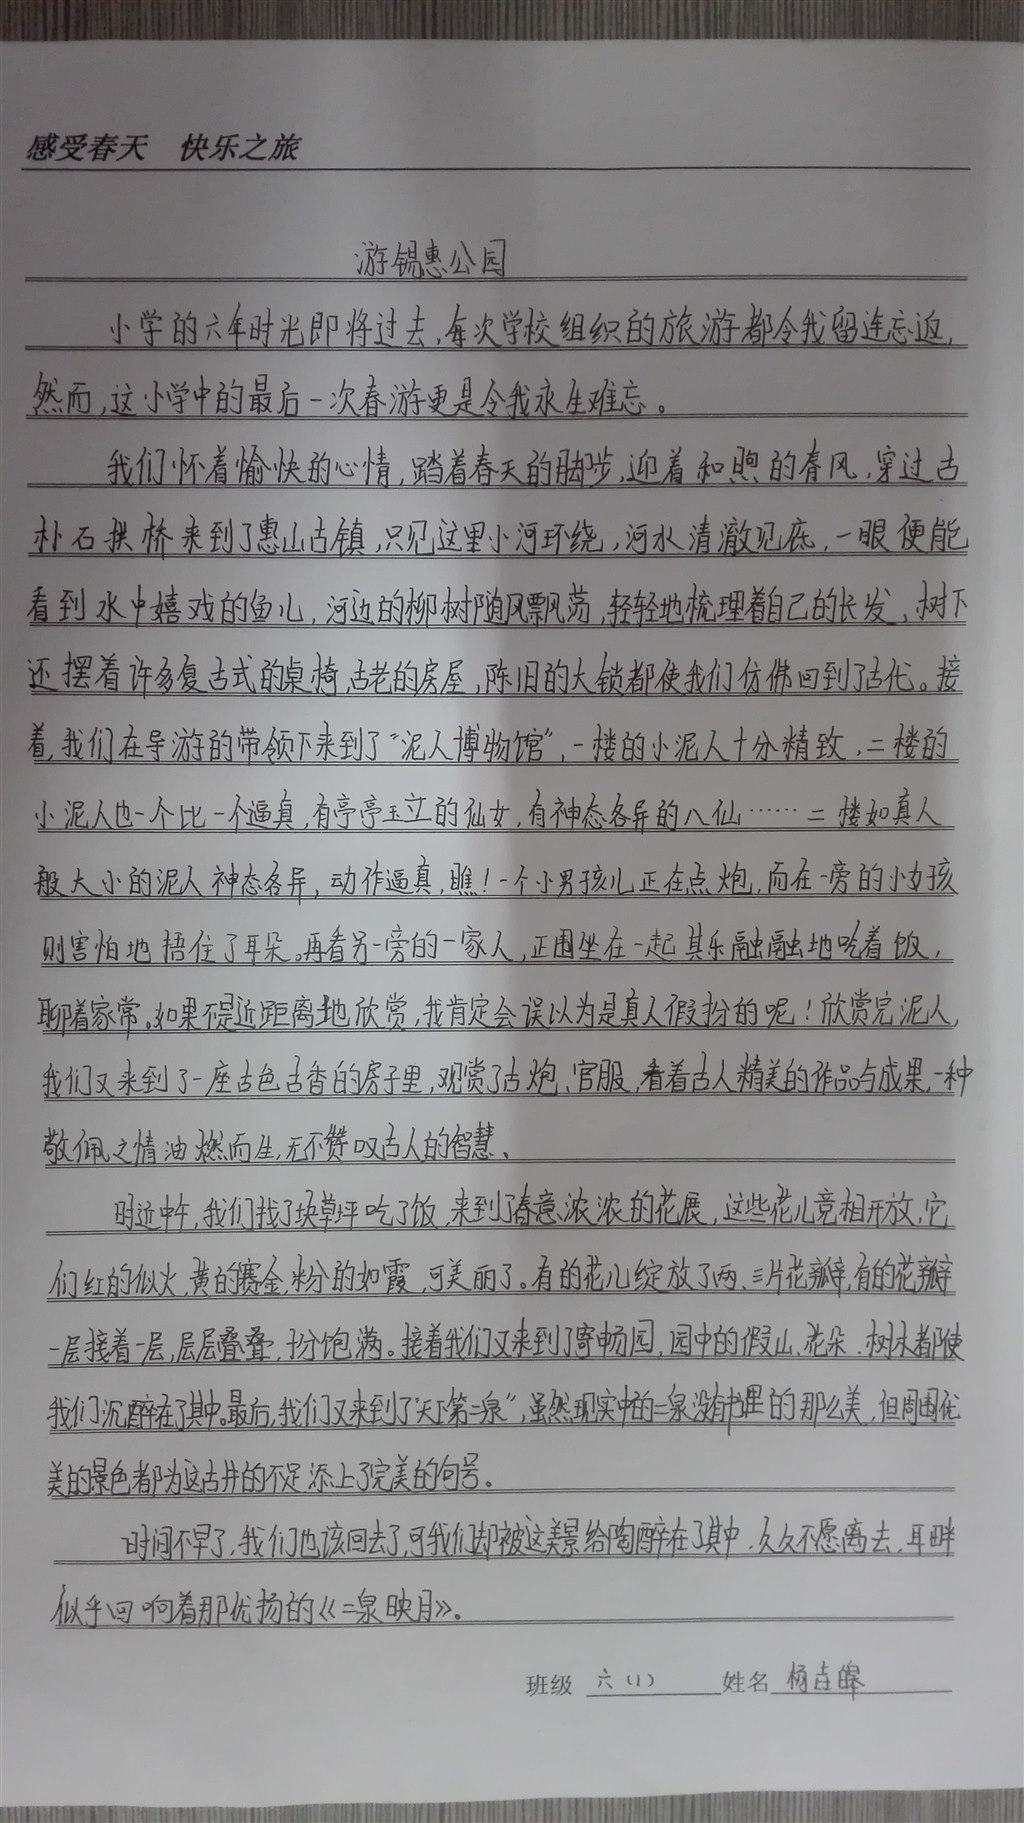 感受春天 快乐之旅
游锡惠公园
小学的六年时光即将过去,每次学校组织的旅游都令我留连忘返,
然而,这小学中的最后一次春游更是令我永生难忘。
我们怀着愉快的心情,踏着春天的脚步,迎着和煦的春风,穿过古
朴石拱桥来到了惠山古镇,只见这里小河环绕,河水清澈见底,一眼便能
看到水中嬉戏的鱼儿,河边的柳树随风飘荡,轻轻地梳理着自己的长发,树下
还摆着许多复古式的桌椅,古老的房屋,陈旧的大锁都使我们仿佛回到了古代。接
着,我们在导游的带领下来到了“泥人博物馆”,一楼的小泥人十分精致,二楼的
小泥人也一个比一个逼真,有亭亭玉立的仙女,有神态各异的八仙……二楼如真人
般大小的泥人神态各异,动作逼真,瞧!一个小男孩儿正在点炮,而在一旁的小女孩
则害怕地捂住了耳朵。再看另一旁的一家人,正围坐在一起其乐融融地吃着饭,
聊着家常。如果不是近距离地欣赏,我肯定会误以为是真人假扮的呢!欣赏完泥人,
我们又来到了一座古色古香的房子里,观赏了古炮、官服,看着古人精美的作品与成果,一种
敬佩之情油燃而生,无不赞叹古人的智慧、
时近中午,我们找了块草坪吃了饭,来到了春意浓浓的花展,这些花儿竞相开放,它
们红的似火,黄的赛金,粉的如霞,可美丽了。有的花儿绽放了两、三片花瓣,有的花瓣
一层接着一层,层层叠叠,十分饱满。接着我们又来到了寄畅园,园中的假山、花朵、树木都使
我们沉醉在了其中。最后,我们又来到了“天下第二泉”,虽然现实中的二泉没有书里的那么美,但周围优
美的景色都为这古井的不足添上了完美的句号。
时间不早了,我们也该回去了,可我们却被这美景给陶醉在了其中,久久不愿离去,耳畔
似乎回响着那优扬的《二泉映月》。
班级 六(1) 姓名 杨